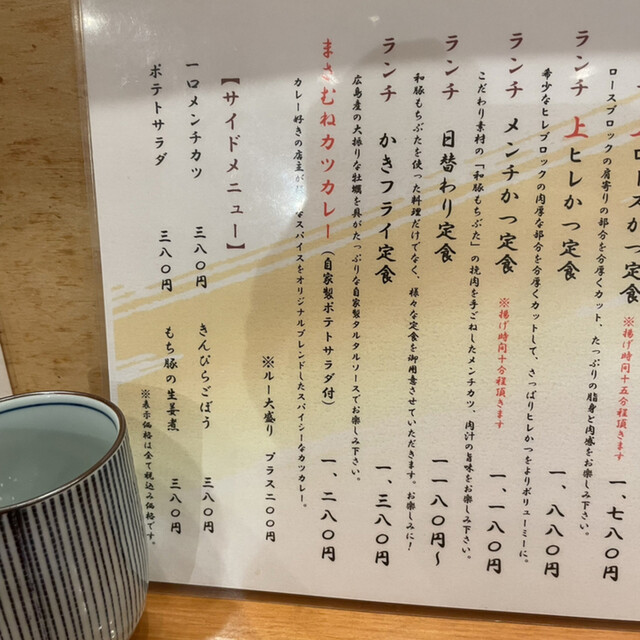 ロースかつ定食
※揚げ時間十五分程頂きます
一、七八〇円
ロースブロックの肩寄りの部分を分厚くカット、たっぷりの脂身と肉感をお楽しみ下さい。
ランチ 上ヒレかつ定食
一、八八〇円
希少なヒレブロックの肉厚な部分を分厚くカットして、さっぱりヒレかつをよりボリューミーに。
ランチ メンチかつ定食
※揚げ時間十分程頂きます
一、一八〇円
こだわり素材の「和豚もちぶた」の挽肉を手ごねしたメンチカツ、肉汁の旨味をお楽しみ下さい。
ランチ 日替わり定食
一一八〇円〜
和豚もちぶたを使った料理だけでなく、様々な定食を御用意させていただきます。お楽しみに!
ランチ かきフライ定食
一、三八〇円
広島産の大振りな牡蠣を具がたっぷりな自家製タルタルソースでお楽しみ下さい。
まさむねカツカレー(自家製ポテトサラダ付)
一、二八〇円
カレー好きの店主が なスパイスをオリジナルブレンドしたスパイシーなカツカレー。
※ルー大盛り プラス二〇〇円
【サイドメニュー】
一口メンチカツ 三八〇円
きんぴらごぼう 三八〇円
ポテトサラダ 三八〇円
もち豚の生姜煮 三八〇円
※表示価格は全て税込み価格です。